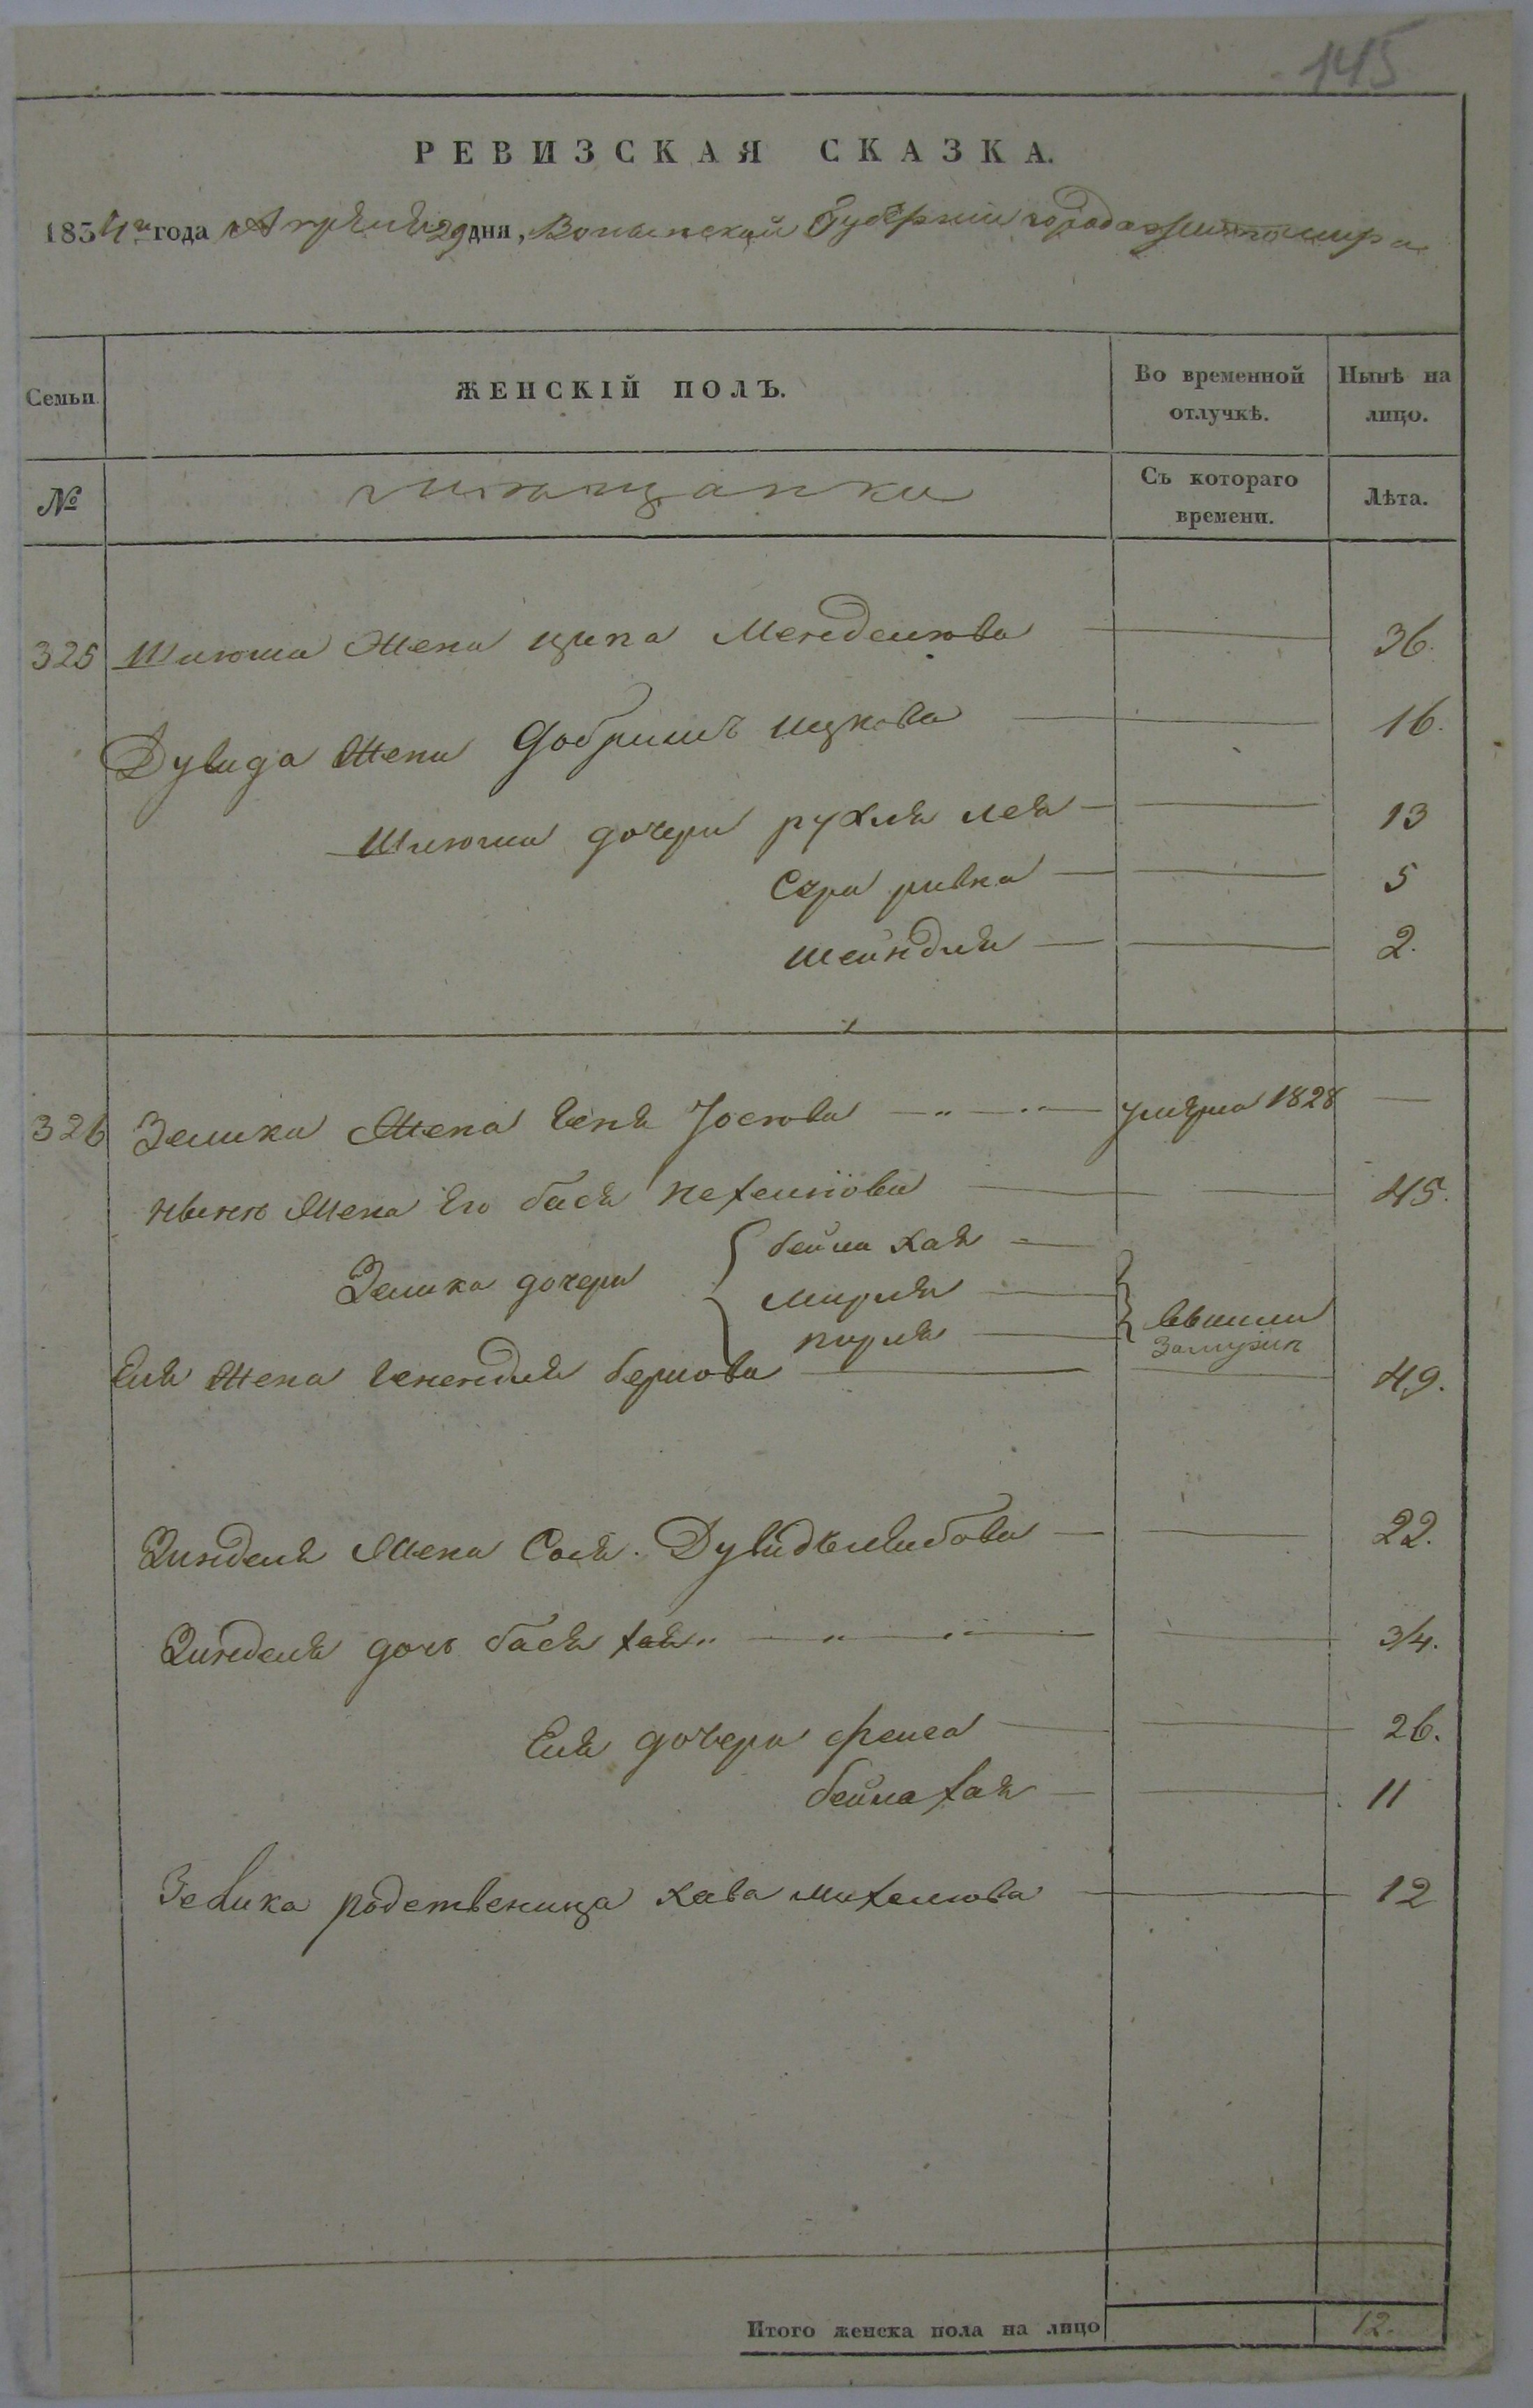 145
РЕВИЗСКАЯ СКАЗКА.
1834го года Апреля 29 дня, Волынской Губернии города Житомира
Семьи
ЖЕНСКІЙ ПОЛЪ.
Во временной отлучкѣ.
Нынѣ на лицо.
№
мещанки
Съ котораго времени.
Лѣта.
325 Шлиома Жена ципа Менделюва 36.
Дувида Жена Добришъ ицкова 16.
Шлиома дочери рухля лея 13
Сура ривка 5
шейндля 2.
326 Зелика Жена Геня Иосюва умерла 1828
ныню Жена Его бася Нехемюва 45.
Зелика дочери
бейла хая
мирля
пирля
вышли замужъ
Еля Жена Генендля беркова 49.
Зинделя Жена Сося Дувидълейбова 22.
Зинделя дочь бася хая 3/4.
Еля дочери фейга 26.
бейла хая 11
Зелика родственица хава михелюва 12
Итого женска пола на лицо 12.